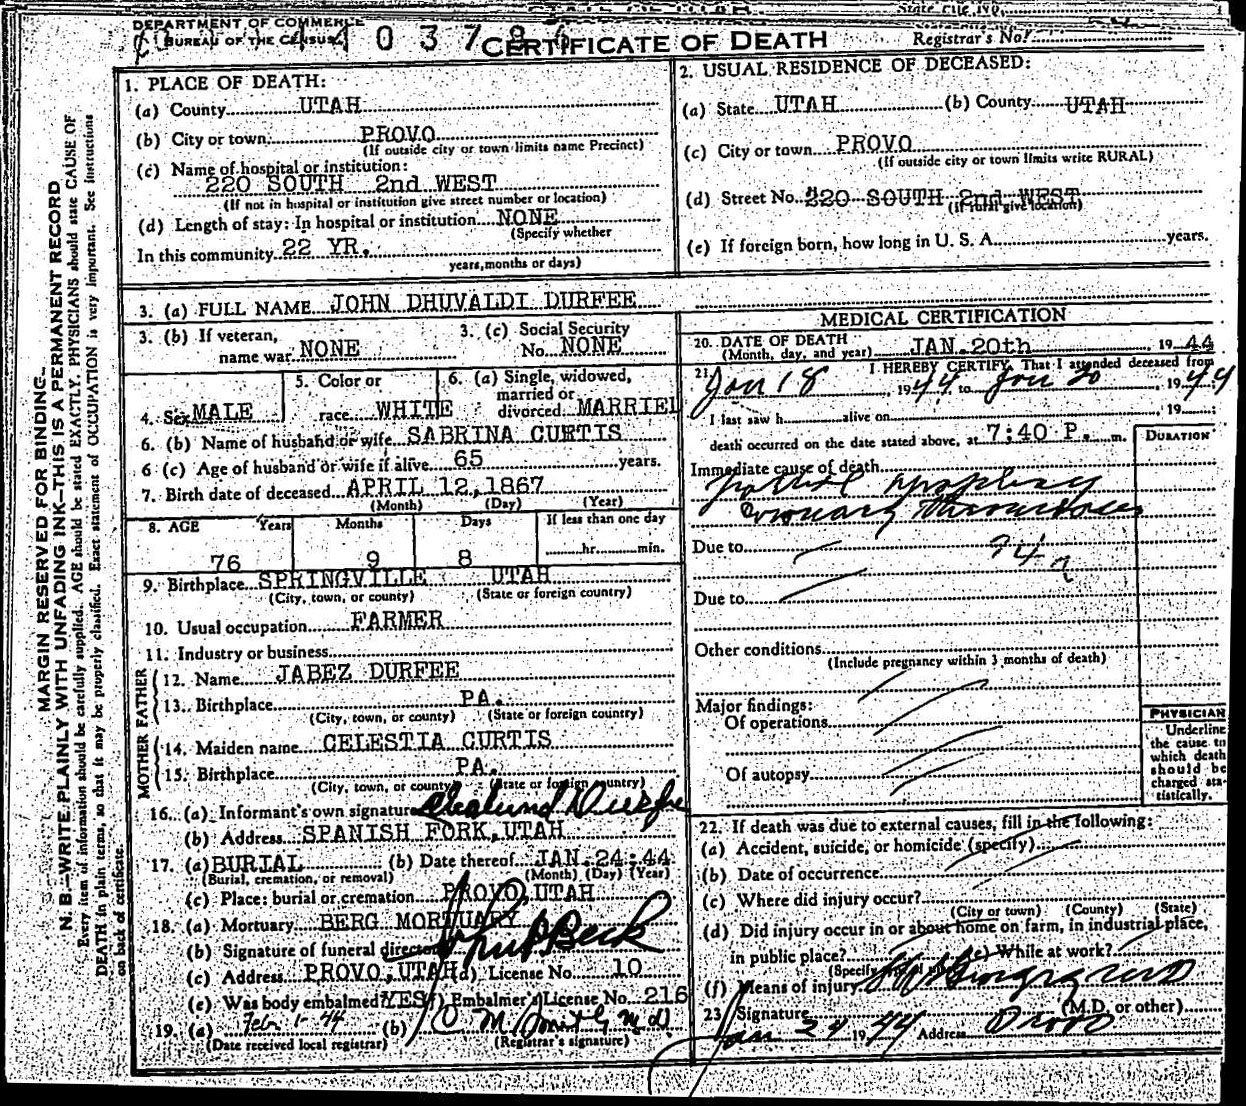 DEPARTMENT OF COMMERCE
BUREAU OF THE CENSUS
CERTIFICATE OF DEATH
State File No.
Registrar's No.
MARGIN RESERVED FOR BINDING
N. B.—WRITE PLAINLY WITH UNFADING INK—THIS IS A PERMANENT RECORD
Every item of information should be carefully supplied. AGE should be stated EXACTLY. PHYSICIANS should state CAUSE OF
DEATH in plain terms, so that it may be properly classified. Exact statement of OCCUPATION is very important. See instructions
on back of certificate
1. PLACE OF DEATH:
(a) County UTAH
(b) City or town: PROVO
(If outside city or town limits name Precinct)
(c) Name of hospital or institution:
220 SOUTH 2nd WEST
(If not in hospital or institution give street number or location)
(d) Length of stay: In hospital or institution NONE
(Specify whether
In this community 22 YR.
years, months or days)
2. USUAL RESIDENCE OF DECEASED:
(a) State UTAH (b) County UTAH
(c) City or town PROVO
(If outside city or town limits write RURAL)
(d) Street No. 220 SOUTH 2nd WEST
(If rural give location)
(e) If foreign born, how long in U. S. A. years.
3. (a) FULL NAME JOHN DHUVALDI DURFEE
3. (b) If veteran,
name war NONE
3. (c) Social Security
No. NONE
4. Sex MALE
5. Color or
race WHITE
6. (a) Single, widowed,
married or
divorced MARRIED
6. (b) Name of husband or wife SABRINA CURTIS
6 (c) Age of husband or wife if alive 65 years.
7. Birth date of deceased APRIL 12, 1867
(Month) (Day) (Year)
8. AGE Years Months Days If less than one day
76 9 8 hr. min.
9. Birthplace SPRINGVILLE UTAH
(City, town, or county) (State or foreign country)
10. Usual occupation FARMER
11. Industry or business
FATHER
12. Name JABEZ DURFEE
13. Birthplace PA.
(City, town, or county) (State or foreign country)
MOTHER
14. Maiden name CELESTIA CURTIS
15. Birthplace PA.
(City, town, or county) (State or foreign country)
16. (a) Informant's own signature Durfee
(b) Address SPANISH FORK, UTAH
17. (a) BURIAL (b) Date thereof JAN. 24, 44
(Burial, cremation, or removal) (Month) (Day) (Year)
(c) Place: burial or cremation PROVO, UTAH
18. (a) Mortuary BERG MORTUARY
(b) Signature of funeral director
(c) Address PROVO, UTAH (d) License No. 10
(e) Was body embalmed? YES (f) Embalmer's License No. 216
19. (a) Feb. 1-44 (b)
(Date received local registrar) (Registrar's signature)
MEDICAL CERTIFICATION
20. DATE OF DEATH
(Month, day, and year) JAN. 20th, 19 44
21. I HEREBY CERTIFY, That I attended deceased from
Jan 18 19 44 to Jan 20, 19 44
I last saw h alive on , 19 ;
death occurred on the date stated above, at 7:40 P. m.
DURATION
Immediate cause of death
Coronary Thrombosis
Due to
94
Due to
Other conditions
(Include pregnancy within 3 months of death)
Major findings:
Of operations
Of autopsy
PHYSICIAN
Underline
the cause to
which death
should be
charged sta-
tistically.
22. If death was due to external causes, fill in the following:
(a) Accident, suicide, or homicide (specify)
(b) Date of occurrence
(c) Where did injury occur?
(City or town) (County) (State)
(d) Did injury occur in or about home on farm, in industrial place,
in public place? (e) While at work?
(Specify
(f) Means of injury
23. Signature
(M.D. or other)
Jan 24 19 44 Address Provo